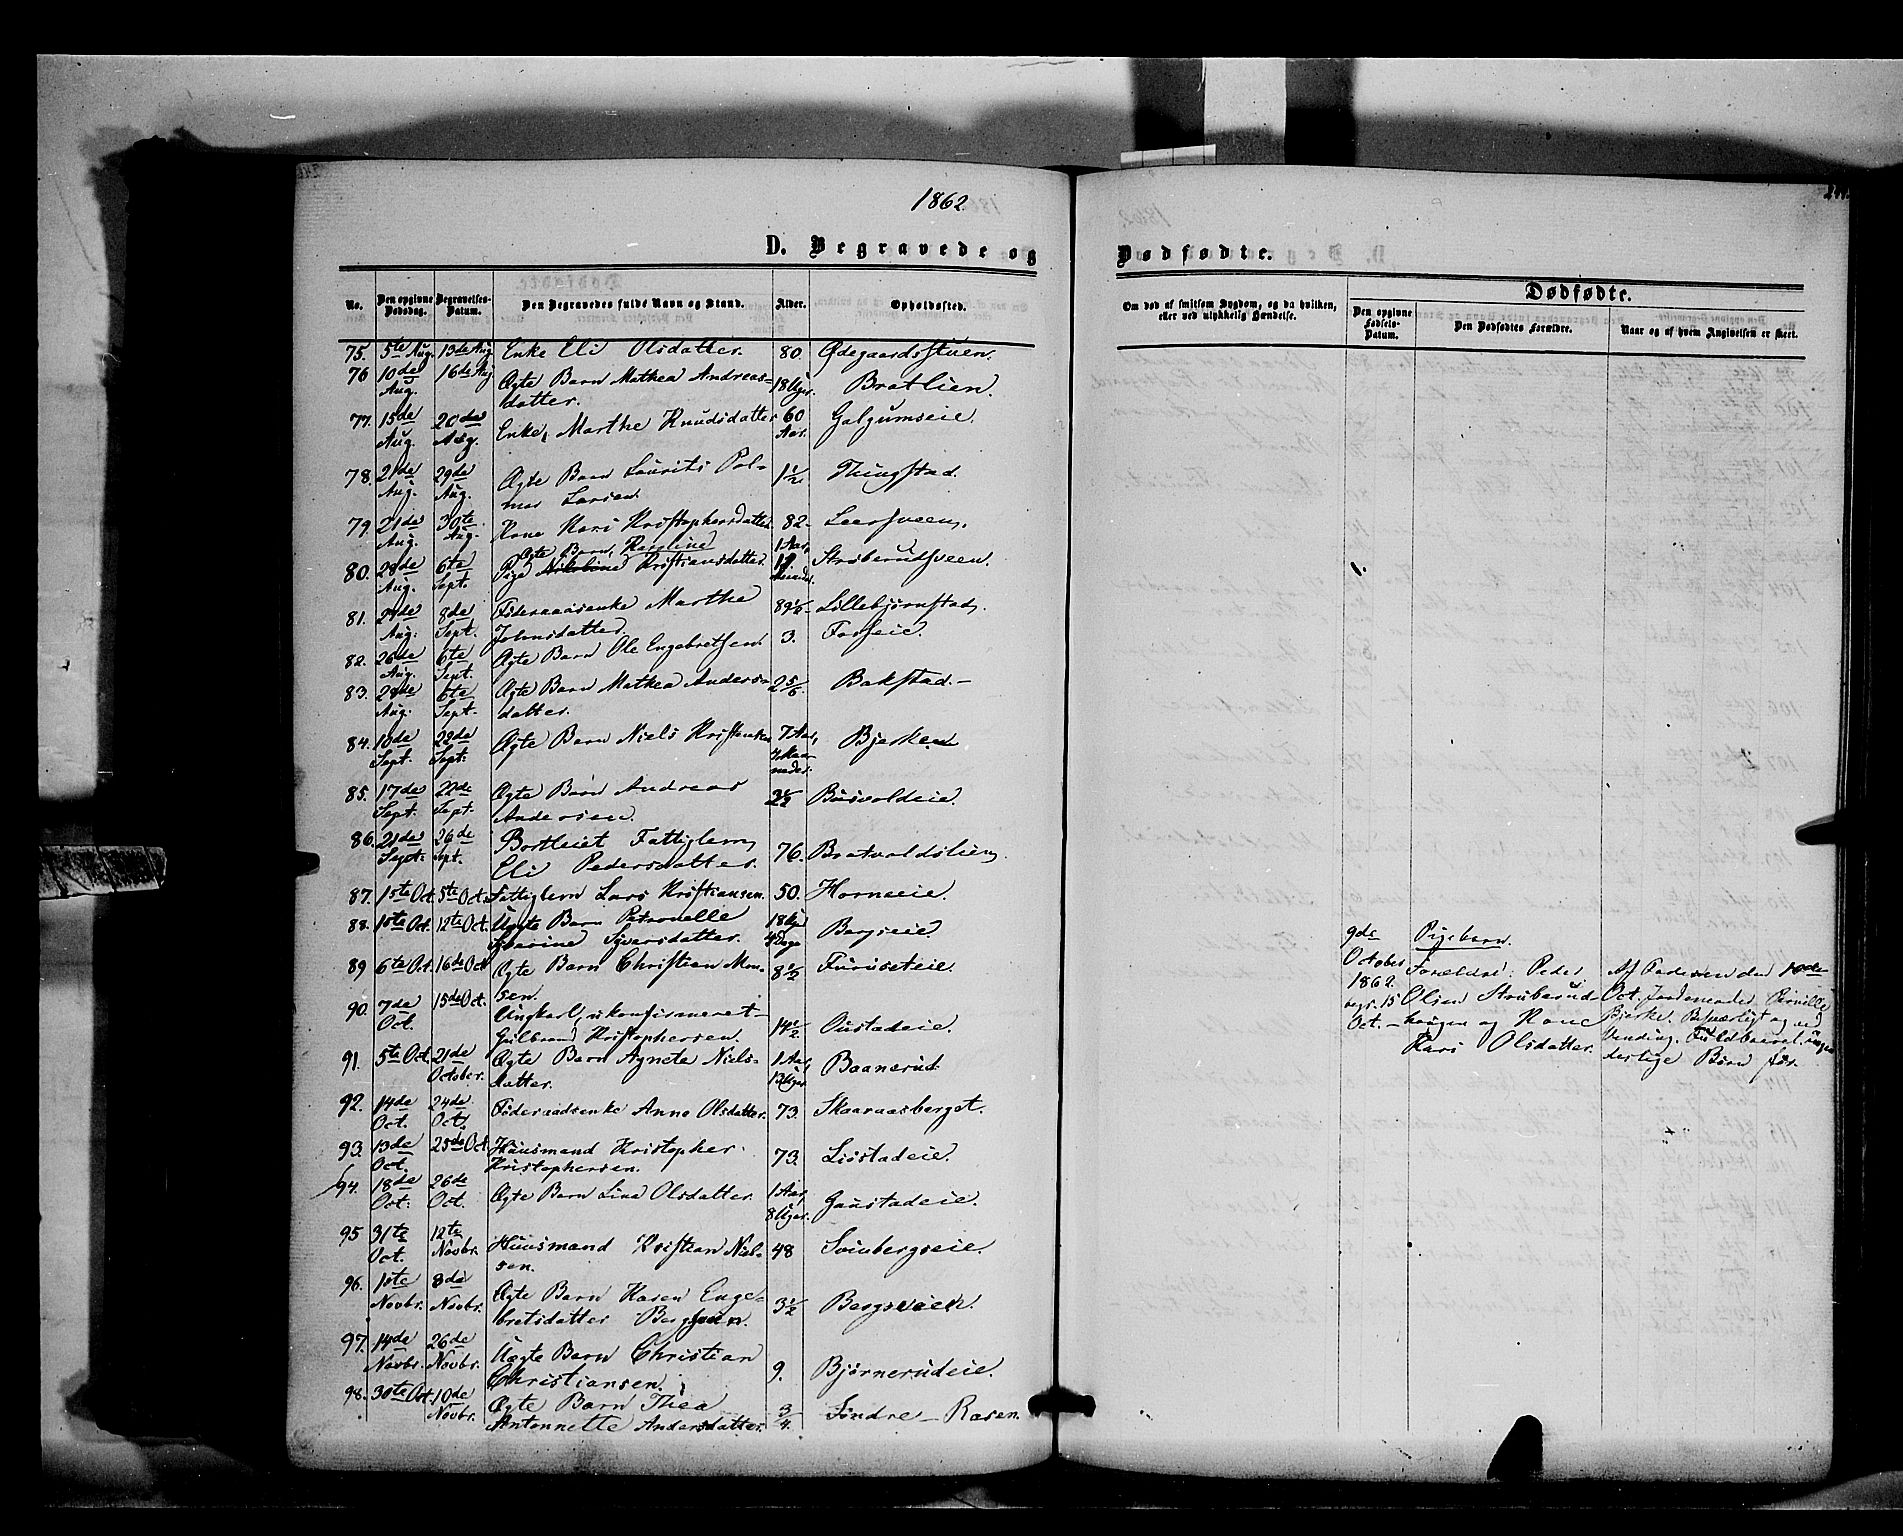 1862
D. Begravede og
Dødfødte.
No. Den opgivne Dødsdag. Begravelses-Datum. Den Begravedes fulde Navn og Stand. Alder. Opholdssted.
Om død af smitsom Sygdom, og da hvilken, eller ved ulykkelig Hændelse.
Dødfødte.
Den opgivne Fødsels-Datum. Den Dødfødtes Forældre. Naar og af hvem Angivelsen er skeet.
75. 5te Aug. 13de Aug Enke Eli Olsdatter. 80. Ødegaardsstuen.
76 10de Aug. 16de Aug Ægte Barn Mathea Andreas-
datter. 18 Uger. Bratlien.
77. 15de Aug. 20de Aug. Enke, Marthe Knudsdatter 60 Aar. Galgumseie.
78. 21de Aug. 29de Aug. Ægte Barn Laurits Pal-
mar Larsen. 1½ Thingstad.
79. 21de Aug. 30te Aug. Kone Kari Kristophersdatter 82-
Ægte Barn, Karoline 1 Aar,
80. 28de Aug. 6te Sept. Pige Kristiansdatter. Struberudsveen.
81. 24de Aug. 8de Sept. Føderaadsenke Marthe
Johnsdatter. Lillebjørnstad.
82. 26de Aug. 6te Sept. Ægte Barn Ole Engebretsen. 3. Fosseie.
83. 28de Aug. 6te Sept. Ægte Barn Mathea Anders-
datter. 2 5/6 Bakstad.-
84. 10de Sept. 22de Sept. Ægte Barn Niels 7 Aar, Maaneder. Bjerke
85. 17de Sept. 22de Sept. Ægte Barn Andreas
Andersen. 2½
86. 21de Sept. 26de Sept. Bortleiet Fattiglem
Eli Pedersdatter. 76. Bratvoldslien.
87. 1ste Oct. 5te Oct. Fattiglem Lars Kristiansen. 50. Horneeie.
88. 1ste Oct. 12te Oct. Uægte Barn Petronelle
Syversdatter. 18 Uger 4 Dage Bergseie.
89 6te Oct. 16de Oct Ægte Barn Christian Mon-
sen. 8½ Furuseteie.
90. 7de Oct. 15de Oct. Ungkarl, ukonfirmeret-
Gulbrand Kristophersen. 14½ Oustadeie.
91. 5te Oct. 21de October. Ægte Barn Agnete Niels-
datter. 1 Aar 13 Uger Baanerud.
92. 14de Oct. 24de Oct. Føderaadsenke Anne Olsdatter. 73. Skaaraasberget.
93. 13de Oct. 25de Oct. Huusmand Kristopher
Kristophersen. 73. Liostadeie.
94. 18de Oct. 26de Oct. Ægte Barn Lina Olsdatter. 1 Aar, 8 Uger. Gaustadeie.
95 31te Oct. 12te Novbr. Huusmand Kristian Niel-
sen. 48 Svinbergseie.
96. 1ste Novbr. 8de Novbr. Ægte Barn Karen Enge-
bretsdatter 3½
97. 14de Novbr. 26de Novbr. Uægte Barn Christian
Christiansen. 9. Bjørnerudeie.
98. 30te Oct. 10de Novbr. Ægte Barn Thea
Antonnette Andersdatter. 3/4. Søndre- Rosen.
9de October 1862. begr. 15 Oct.-
Pigebarn.
Forældre: Peder
Olsen Struberud-
haugen og Kone
Kari Olsdatter.
Af Faderen den 10de
Oct. Jordemoder Pernille
Bjerke. Besværligt og ved
Vending. Fuldbaaret, ingen
døftige Børn før.